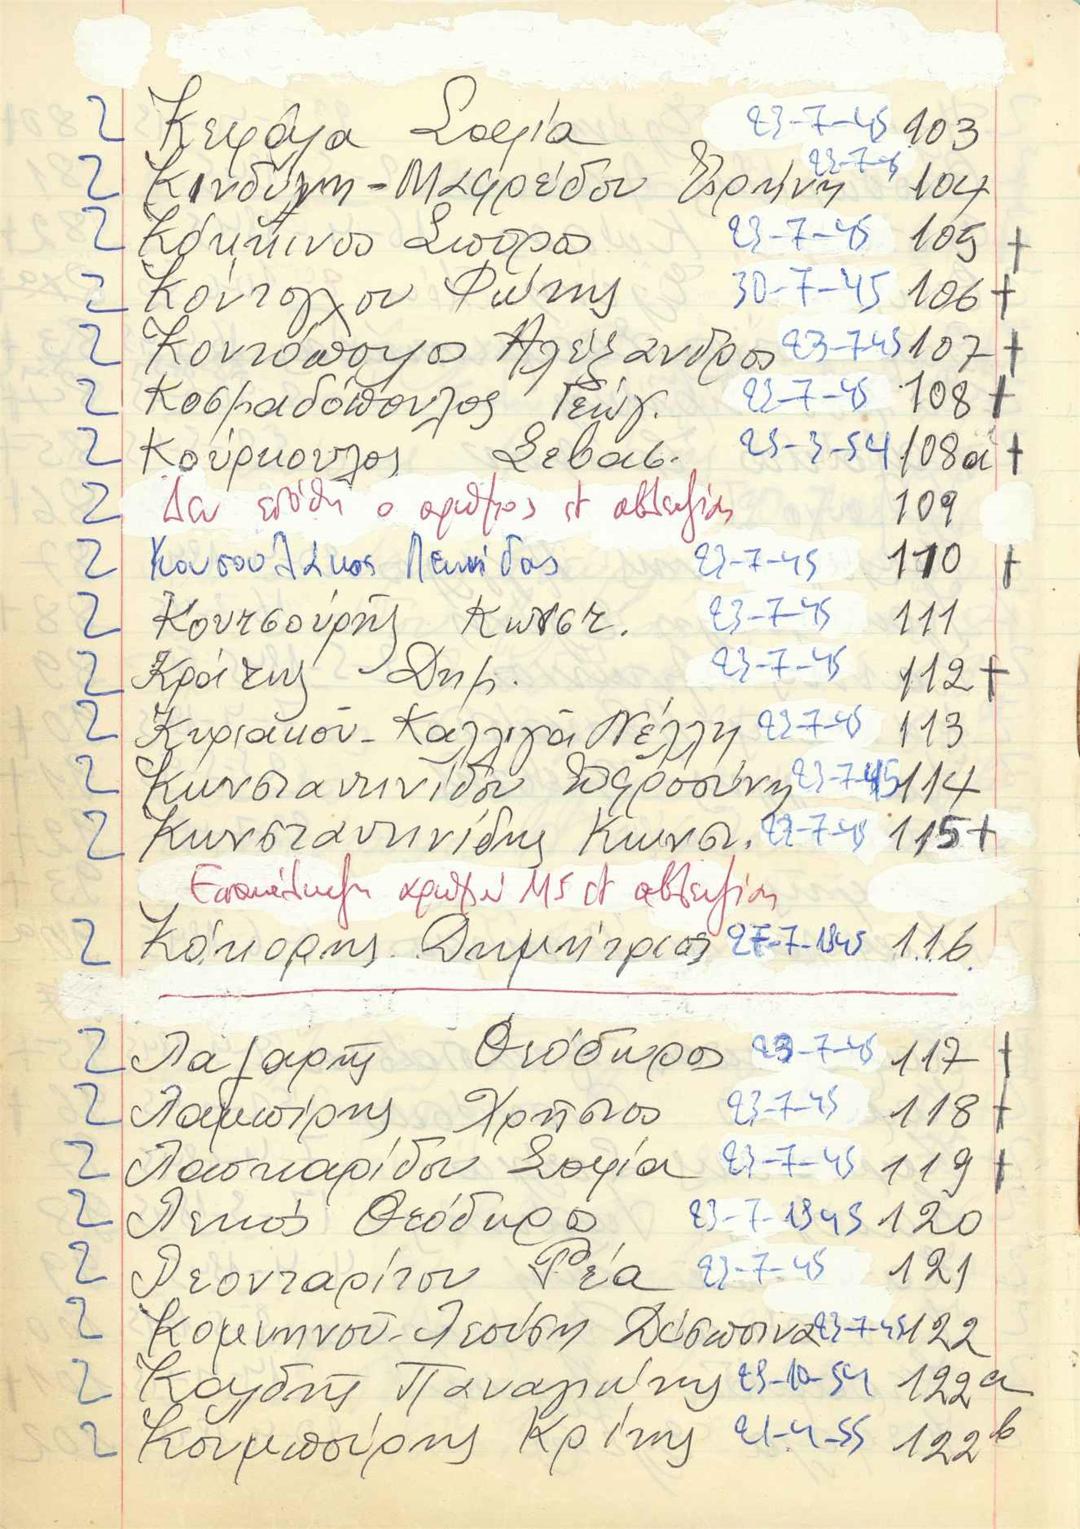 2 Κεφάλα Σοφία 23-7-45 103
2 Κινδύνη-Μαφρέδου Ειρήνη 23-7-45 104
2 Κόκκινος Σπύρος 23-7-45 105 +
2 Κόντογλου Φώτης 30-7-45 106 +
2 Κοντόπουλος Αλέξανδρος 23-7-45 107 +
2 Κοσμαδόπουλος Γεώγ. 23-7-45 108 +
2 Κούρκουλος Σεβασ. 25-3-54 108α +
2 Δεν ετέθη ο αριθμός εξ αβλεψίας 109
2 Κουσουλάκος Λεωνίδας 23-7-45 110 +
2 Κουτσούρης Κωνστ. 23-7-45 111
2 Κράτης Δημ. 23-7-45 112 +
2 Κυριακού-Καλλιγά Νέλλη 23-7-45 113
2 Κωνσταντινίδου Ευφροσύνη 23-7-45 114
2 Κωνσταντινίδης Κωνστ. 23-7-45 115 +
Επανάληψη αριθμού 115 εξ αβλεψίας
2 Κόκορης Δημήτριος 27-7-1945 116
2 Λάζαρης Θεόδωρος 23-7-45 117 +
2 Λαμπίρης Χρήστος 23-7-45 118 +
2 Λασκαρίδου Σοφία 23-7-45 119 +
2 Λεκός Θεόδωρος 23-7-1945 120
2 Λεονταρίτου Ρέα 23-7-45 121
2 Κομνηνού-Λεούση Δέσποινα 23-7-45 122
2 Παναγιώτης 23-10-54 122α
2 Κρίτης 21-4-55 122b